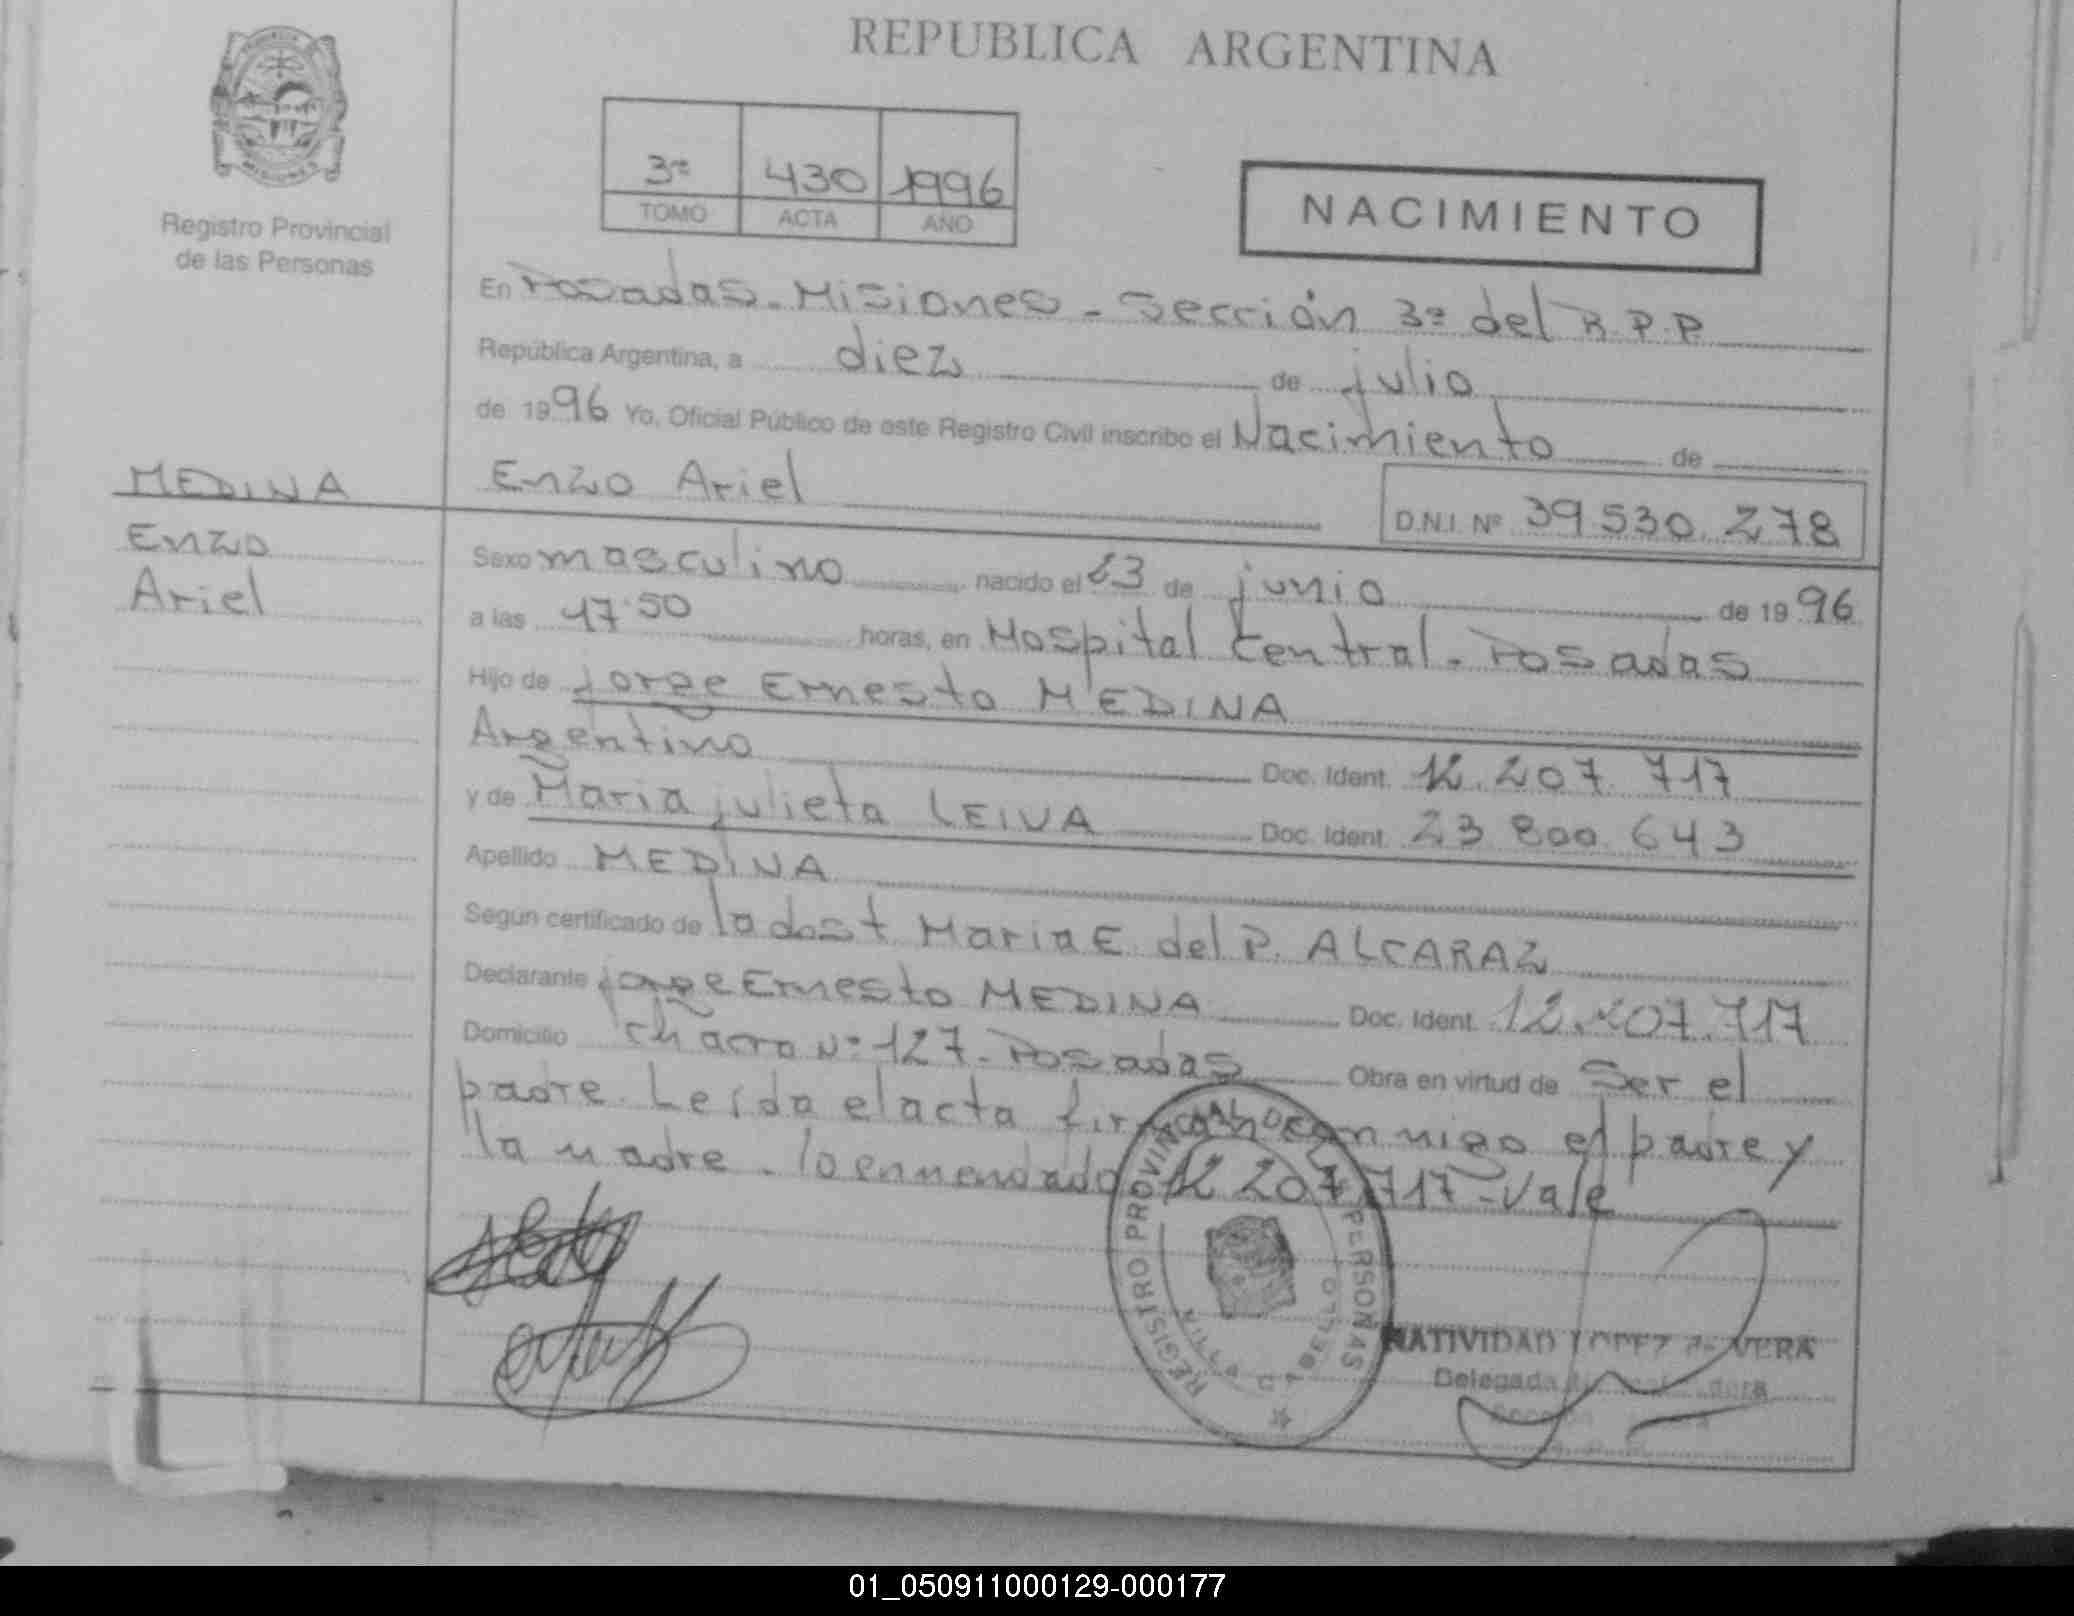 REPUBLICA ARGENTINA
Registro Provincial
de las Personas
3ª 430 1996
TOMO ACTA AÑO
NACIMIENTO
En Posadas - Misiones - Sección 3ª del R.P.P.
República Argentina, a diez de julio
de 1996 Yo, Oficial Público de este Registro Civil inscribo el Nacimiento de
Enzo Ariel D.N.I. Nº 39.530.278
MEDINA
Enzo
Ariel
Sexo masculino nacido el 23 de junio de 1996
a las 17:50 horas, en Hospital Central - Posadas
Hijo de Jorge Ernesto MEDINA
Argentino Doc. Ident. 12.207.717
y de Maria Julieta LEIVA Doc. Ident. 23.800.643
Apellido MEDINA
Según certificado de la dost Maria E. del P. ALCARAZ
Declarante Jorge Ernesto MEDINA Doc. Ident. 12.207.717
Domicilio Chacra Nº 127 - Posadas Obra en virtud de Ser el
padre. Leída el acta firman conmigo el padre y
la madre - lo enmendado 12 207 717 - Vale
REGISTRO PROVINCIAL DE LAS PERSONAS
VILLA CABELLO
NATIVIDAD LOPEZ VERA
Delegada
01_050911000129-000177